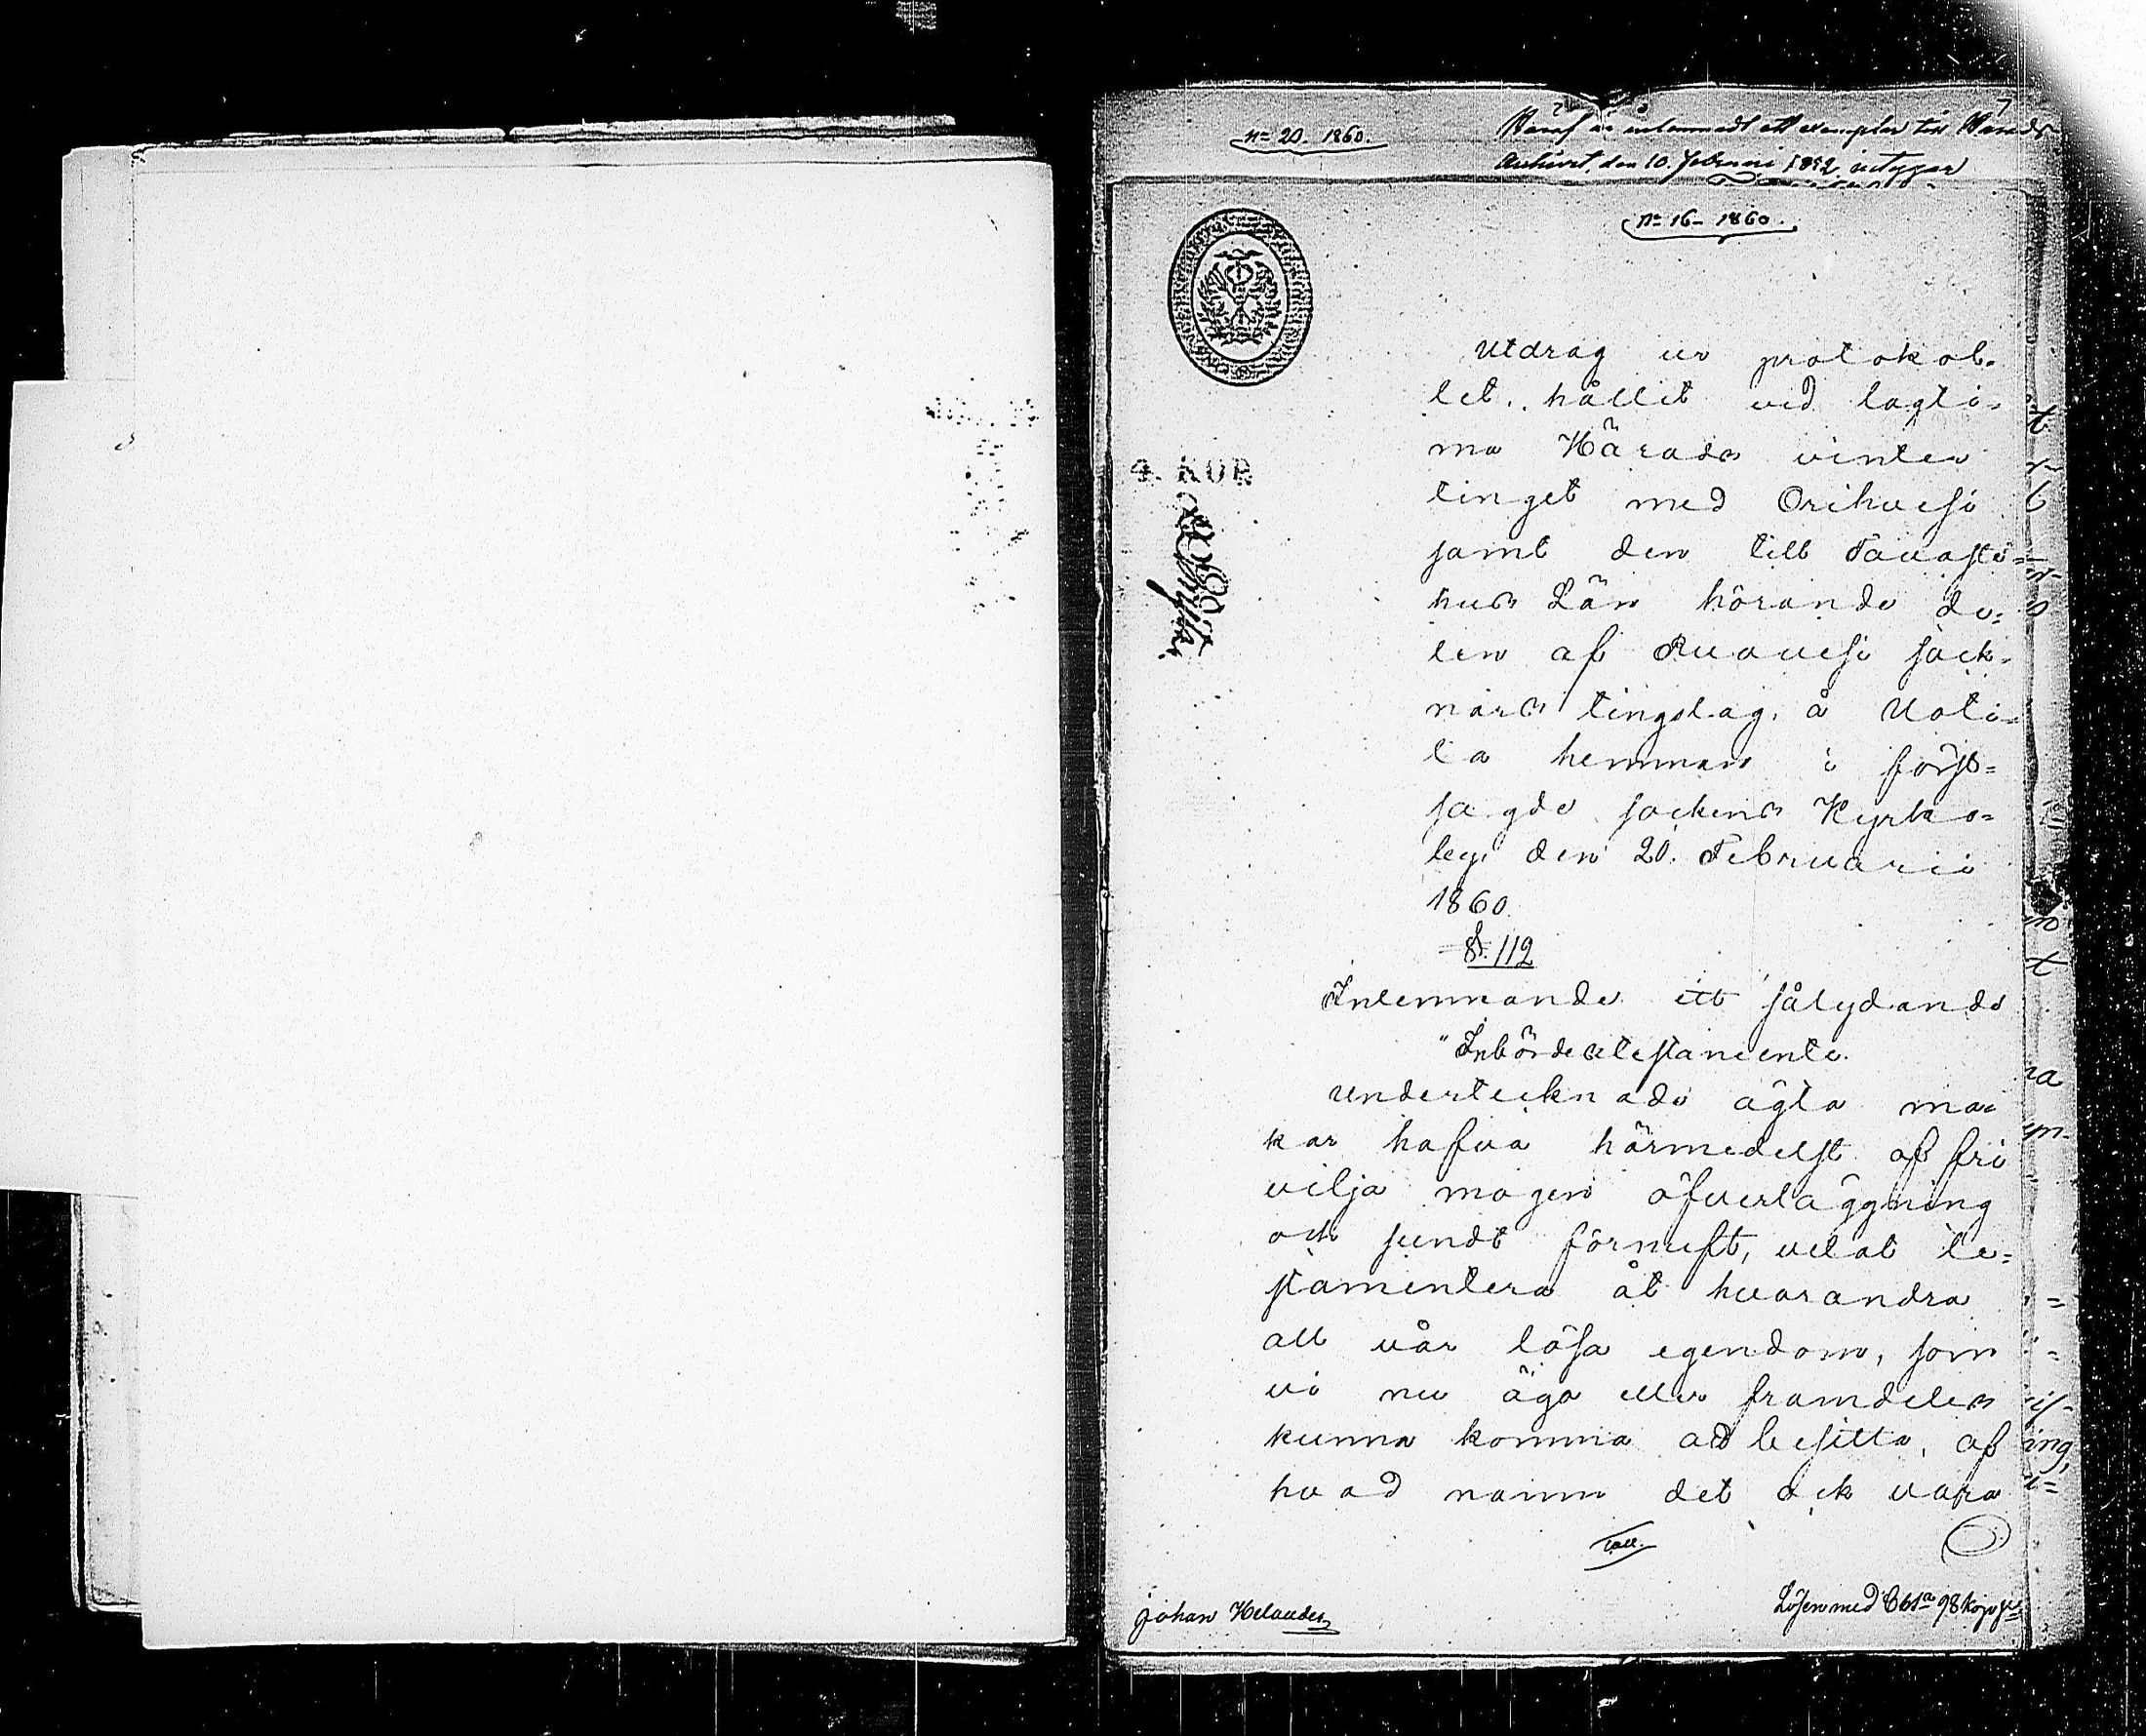 No 20. 1860.
7
Häraf är inlemnadt ett exemplar till
Archivet, den 10. Februari 1892, intygar
No 16 - 1860.
4. KOP.
Utdrag ur protokol-
let, hållit vid lagti-
ma Härads vinter
tinget med Orihvesi
samt den till Tavaste-
hus Län hörande de-
len af Ruovesi sock-
nars tingslag, å Uoti-
la hemman i först-
sagde sockens Kyrko-
by, den 20. Februarii
1860.
§. 112
Inlemnande ett sålydande
"Inbördestestamente.
Undertecknade ägta ma-
kar hafva härmedelst af fri
vilja mogen öfverläggning
och sundt förnuft, velat te-
stamentera åt hvarandra
all vår lösa egendom, som
vi nu äga eller framdeles
kunna komma att besitta, af
hvad namn det ock vara
Johan Helander
Lösen med 98 kop